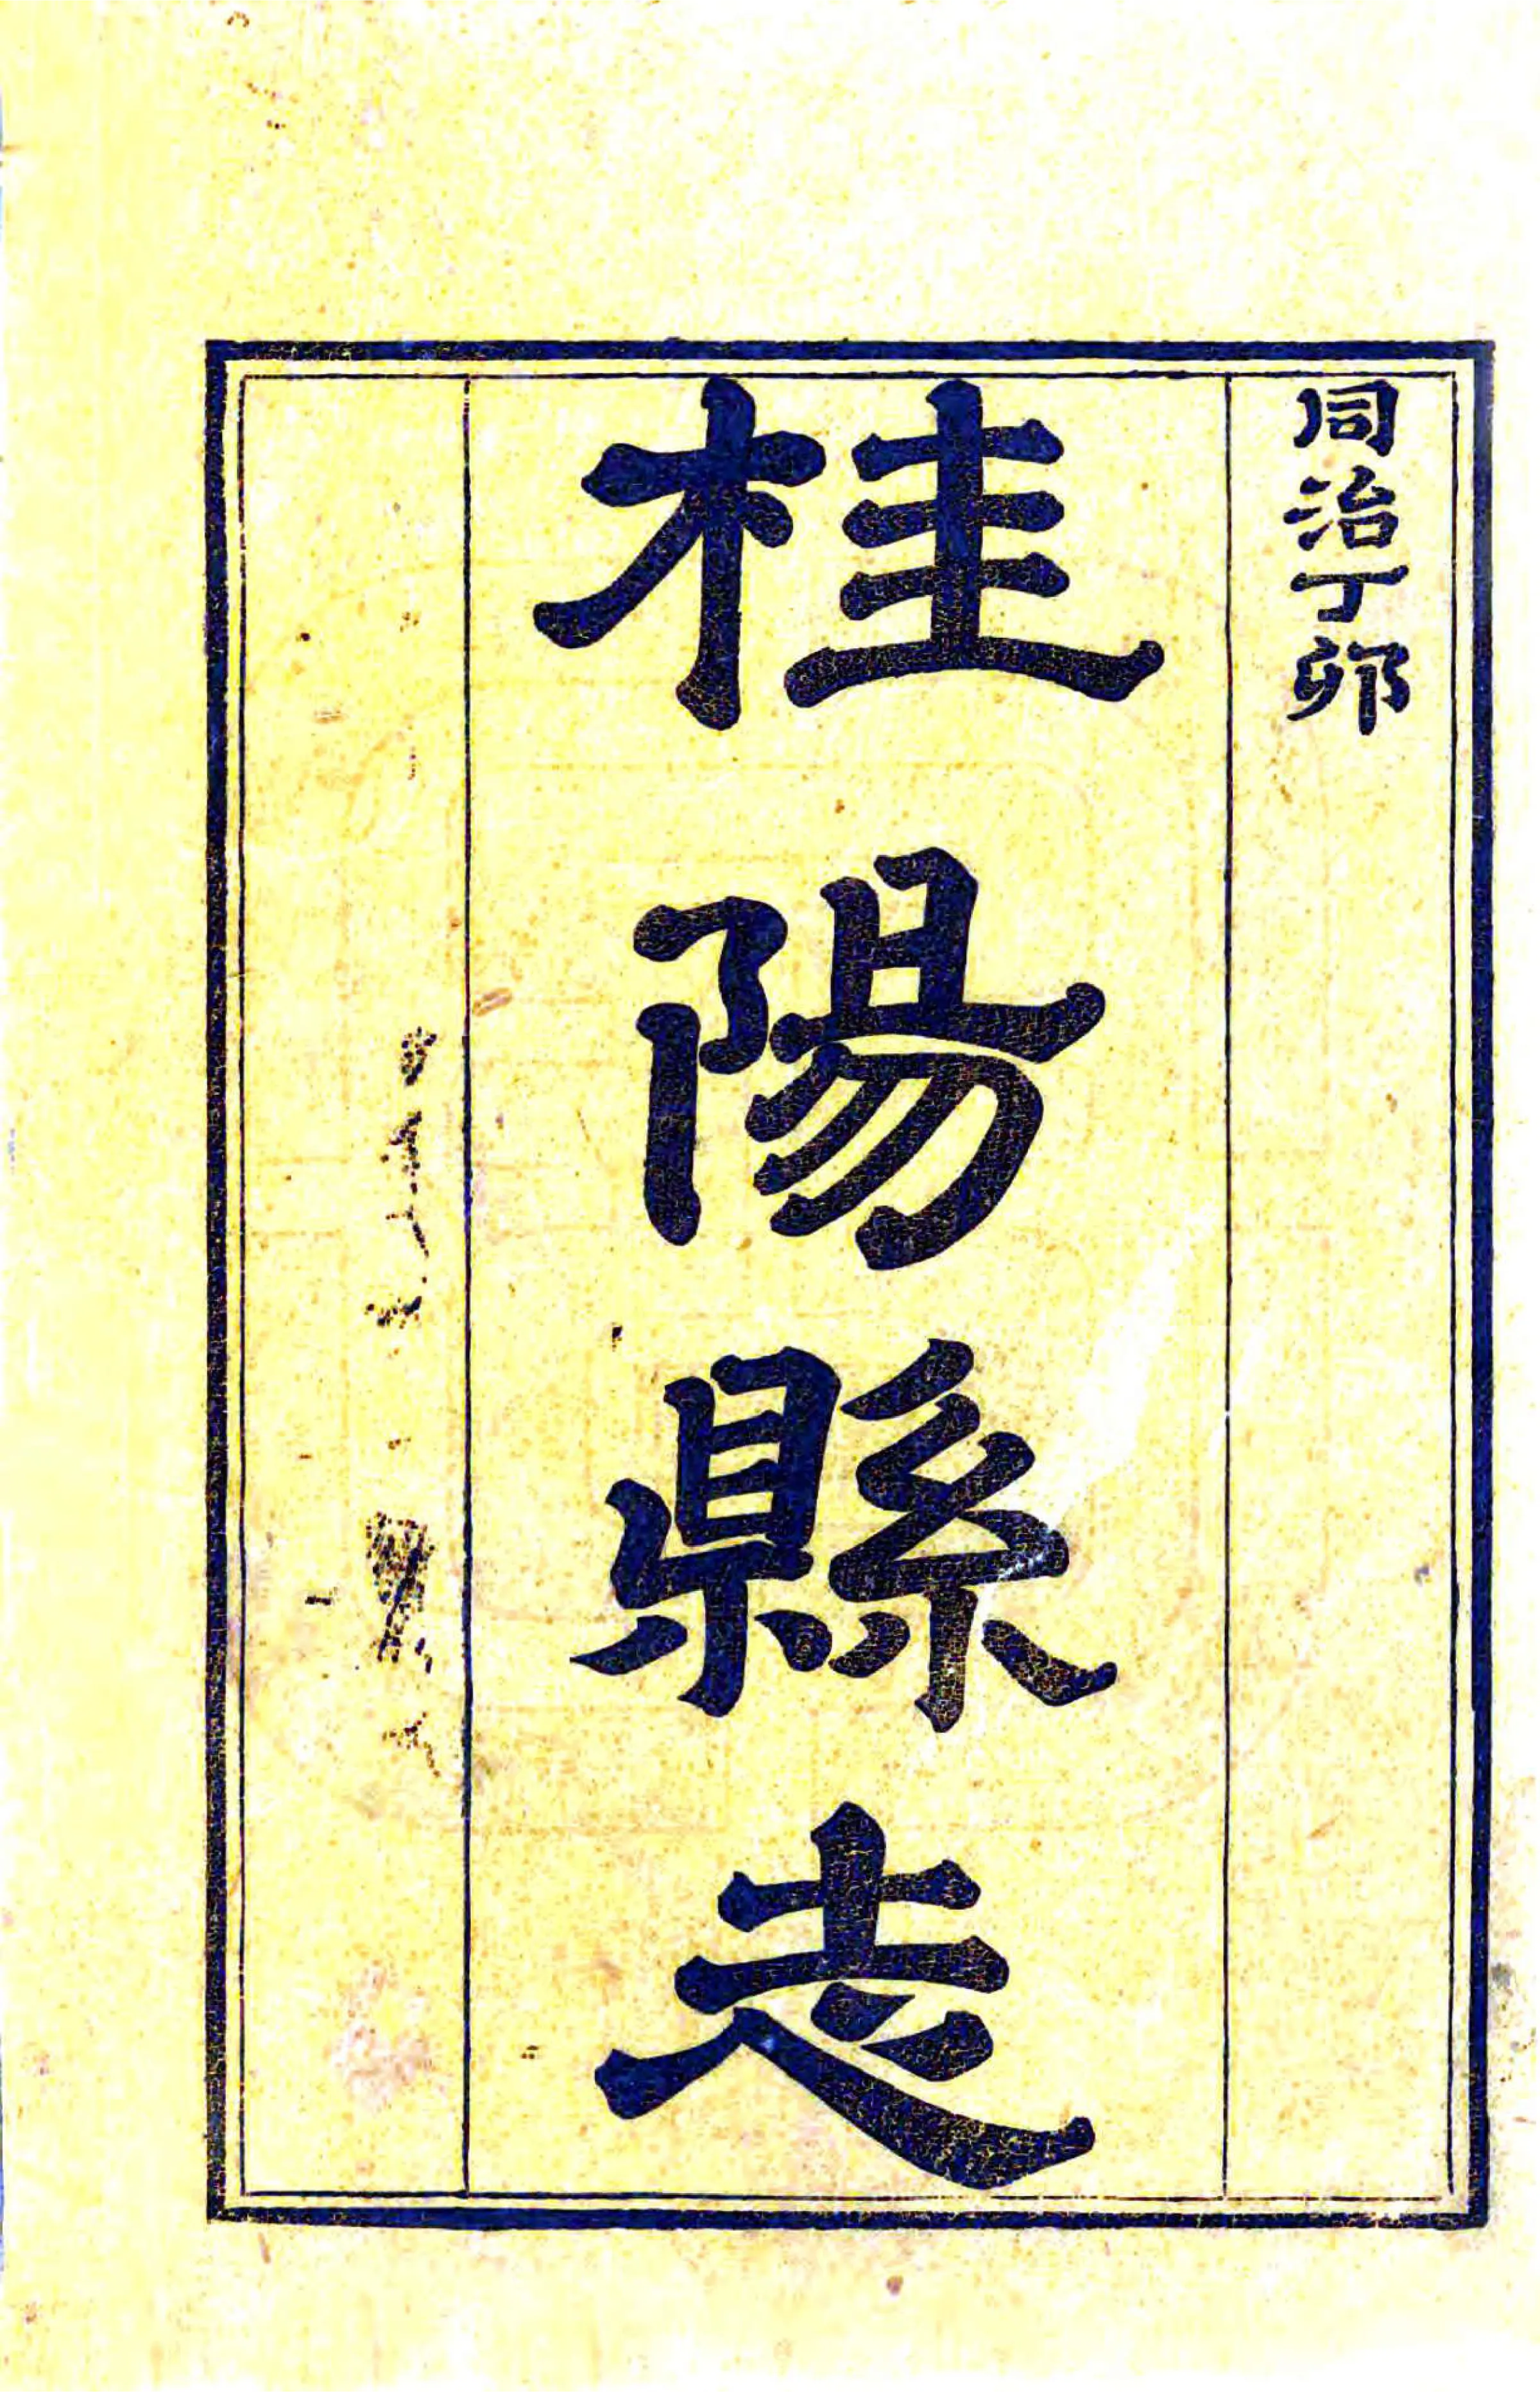 同治丁卯
桂陽縣志